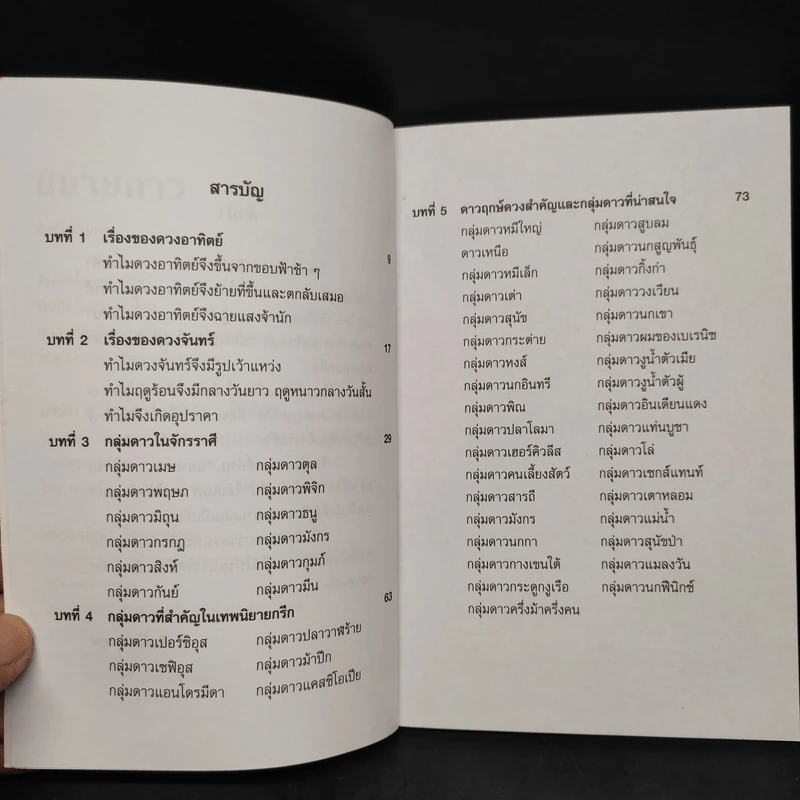 สารบัญ
บทที่ 1 เรื่องของดวงอาทิตย์ 9
ทำไมดวงอาทิตย์จึงขึ้นจากขอบฟ้าช้า ๆ
ทำไมดวงอาทิตย์จึงย้ายที่ขึ้นและตกลับเสมอ
ทำไมดวงอาทิตย์จึงฉายแสงจ้านัก
บทที่ 2 เรื่องของดวงจันทร์ 17
ทำไมดวงจันทร์จึงมีรูปเว้าแหว่ง
ทำไมฤดูร้อนจึงมีกลางวันยาว ฤดูหนาวกลางวันสั้น
ทำไมจึงเกิดอุปราคา
บทที่ 3 กลุ่มดาวในจักรราศี 29
กลุ่มดาวเมษ กลุ่มดาวตุล
กลุ่มดาวพฤษภ กลุ่มดาวพิจิก
กลุ่มดาวมิถุน กลุ่มดาวธนู
กลุ่มดาวกรกฎ กลุ่มดาวมังกร
กลุ่มดาวสิงห์ กลุ่มดาวกุมภ์
กลุ่มดาวกันย์ กลุ่มดาวมีน
บทที่ 4 กลุ่มดาวที่สำคัญในเทพนิยายกรีก 63
กลุ่มดาวเปอร์ซิอุส กลุ่มดาวปลาวาฬร้าย
กลุ่มดาวเซฟิอุส กลุ่มดาวม้าปีก
กลุ่มดาวแอนโดรมีดา กลุ่มดาวแคสซิโอเปีย
บทที่ 5 ดาวฤกษ์ดวงสำคัญและกลุ่มดาวที่น่าสนใจ 73
กลุ่มดาวหมีใหญ่ กลุ่มดาวสูบลม
ดาวเหนือ กลุ่มดาวนกสูญพันธุ์
กลุ่มดาวหมีเล็ก กลุ่มดาวกิ้งก่า
กลุ่มดาวเต่า กลุ่มดาววงเวียน
กลุ่มดาวสุนัข กลุ่มดาวนกเขา
กลุ่มดาวกระต่าย กลุ่มดาวผมของเบเรนิซ
กลุ่มดาวหงส์ กลุ่มดาวงูน้ำตัวเมีย
กลุ่มดาวนกอินทรี กลุ่มดาวงูน้ำตัวผู้
กลุ่มดาวพิณ กลุ่มดาวอินเดียนแดง
กลุ่มดาวปลาโลมา กลุ่มดาวแท่นบูชา
กลุ่มดาวเฮอร์คิวลีส กลุ่มดาวโล่
กลุ่มดาวคนเลี้ยงสัตว์ กลุ่มดาวเซกส์แทนท์
กลุ่มดาวสารถี กลุ่มดาวเตาหลอม
กลุ่มดาวมังกร กลุ่มดาวแม่น้ำ
กลุ่มดาวนกกา กลุ่มดาวสุนัขป่า
กลุ่มดาวกางเขนใต้ กลุ่มดาวแมลงวัน
กลุ่มดาวกระดูกงูเรือ กลุ่มดาวนกฟีนิกซ์
กลุ่มดาวครึ่งม้าครึ่งคน